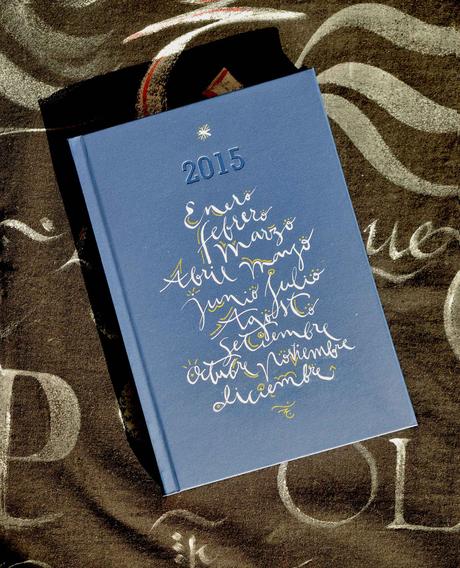 2015
Enero
febrero
Marzo
Abril Mayo
Junio Julio
Agosto
Setiembre
Octubre Noviembre
diciembre
P
ue
OL